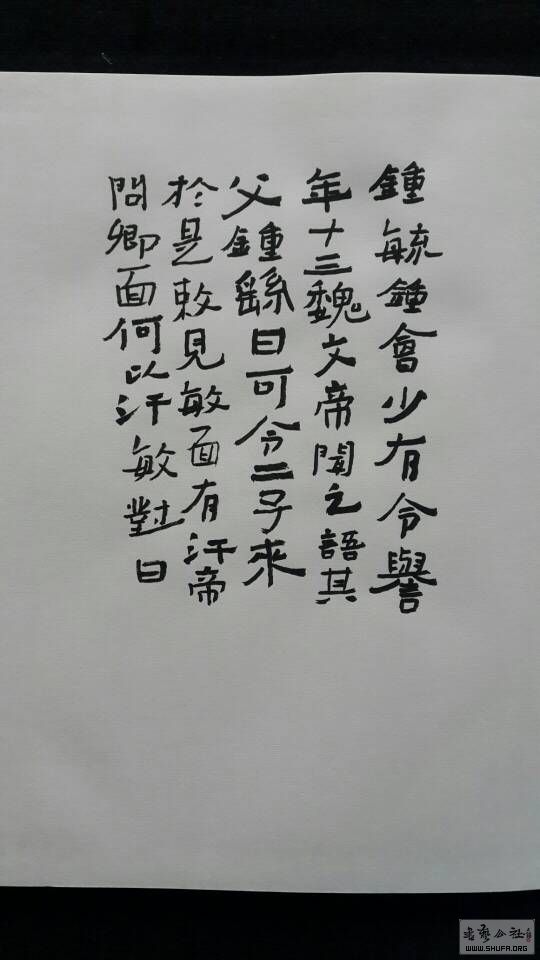 鍾毓鍾會少有令譽
年十三魏文帝聞之語其
父鍾繇曰可令二子來
於是敕見敏面有汗帝
問卿面何以汗敏對曰
WWW.SHUFA.ORG